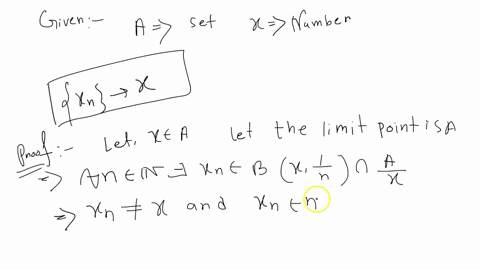 Given:- A => set x => Number
{xn} → x
Proof:- Let, x ∈ A Let the limit point is A
=> ∀n ∈ N ∃ xn ∈ B (x, 1/n) ∩ A/x
=> xn ≠ x and xn ∈ n